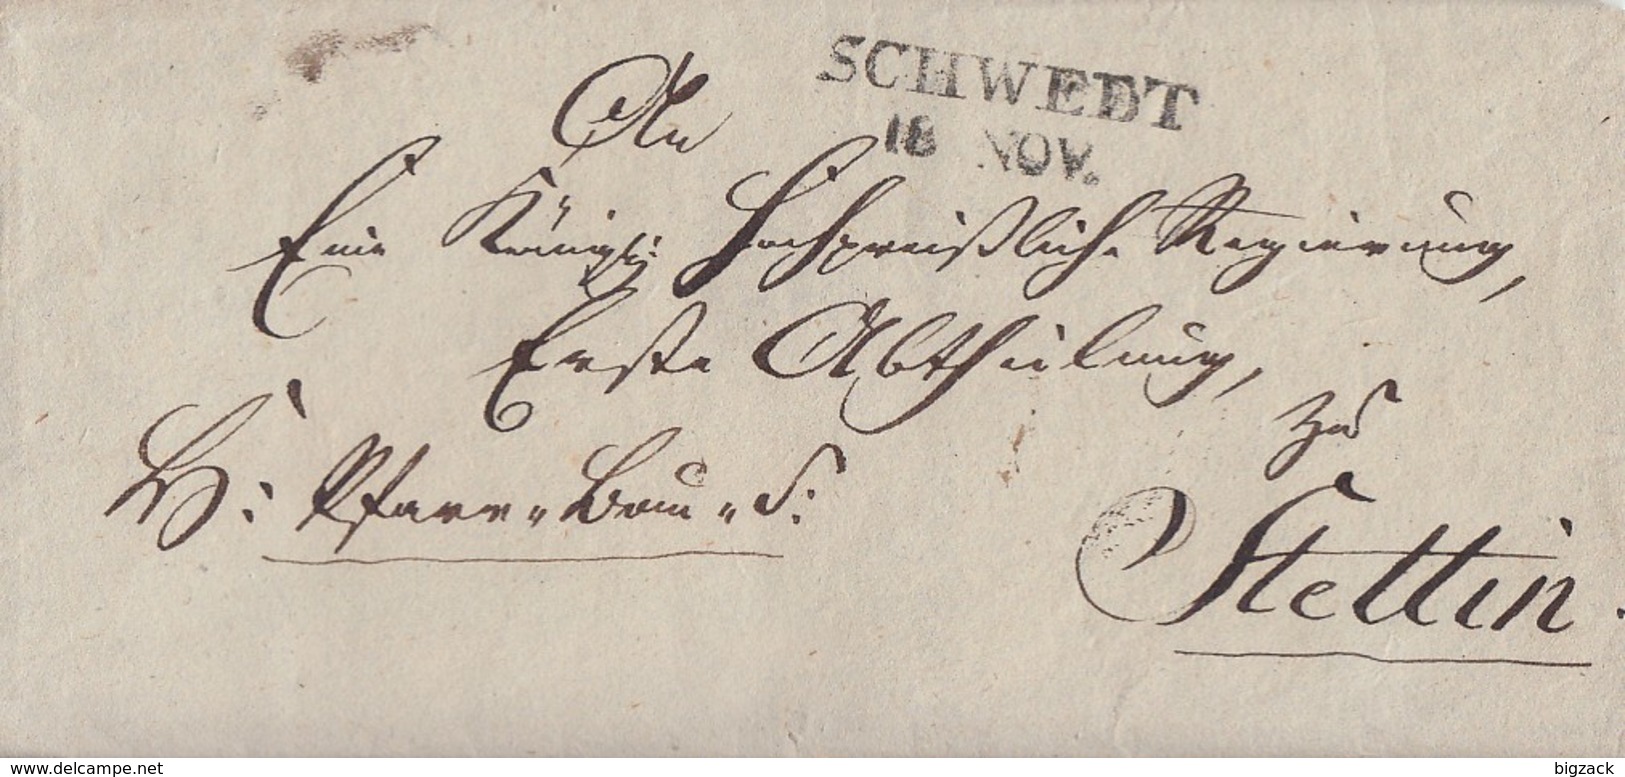 SCHWEDT
18 NOV.
An
Eine Königl: Hochpreißliche Regierung,
Erste Abtheilung,
zu
Stettin.
H: Pfarr-Bau-S:
www.delcampe.net
bigzack